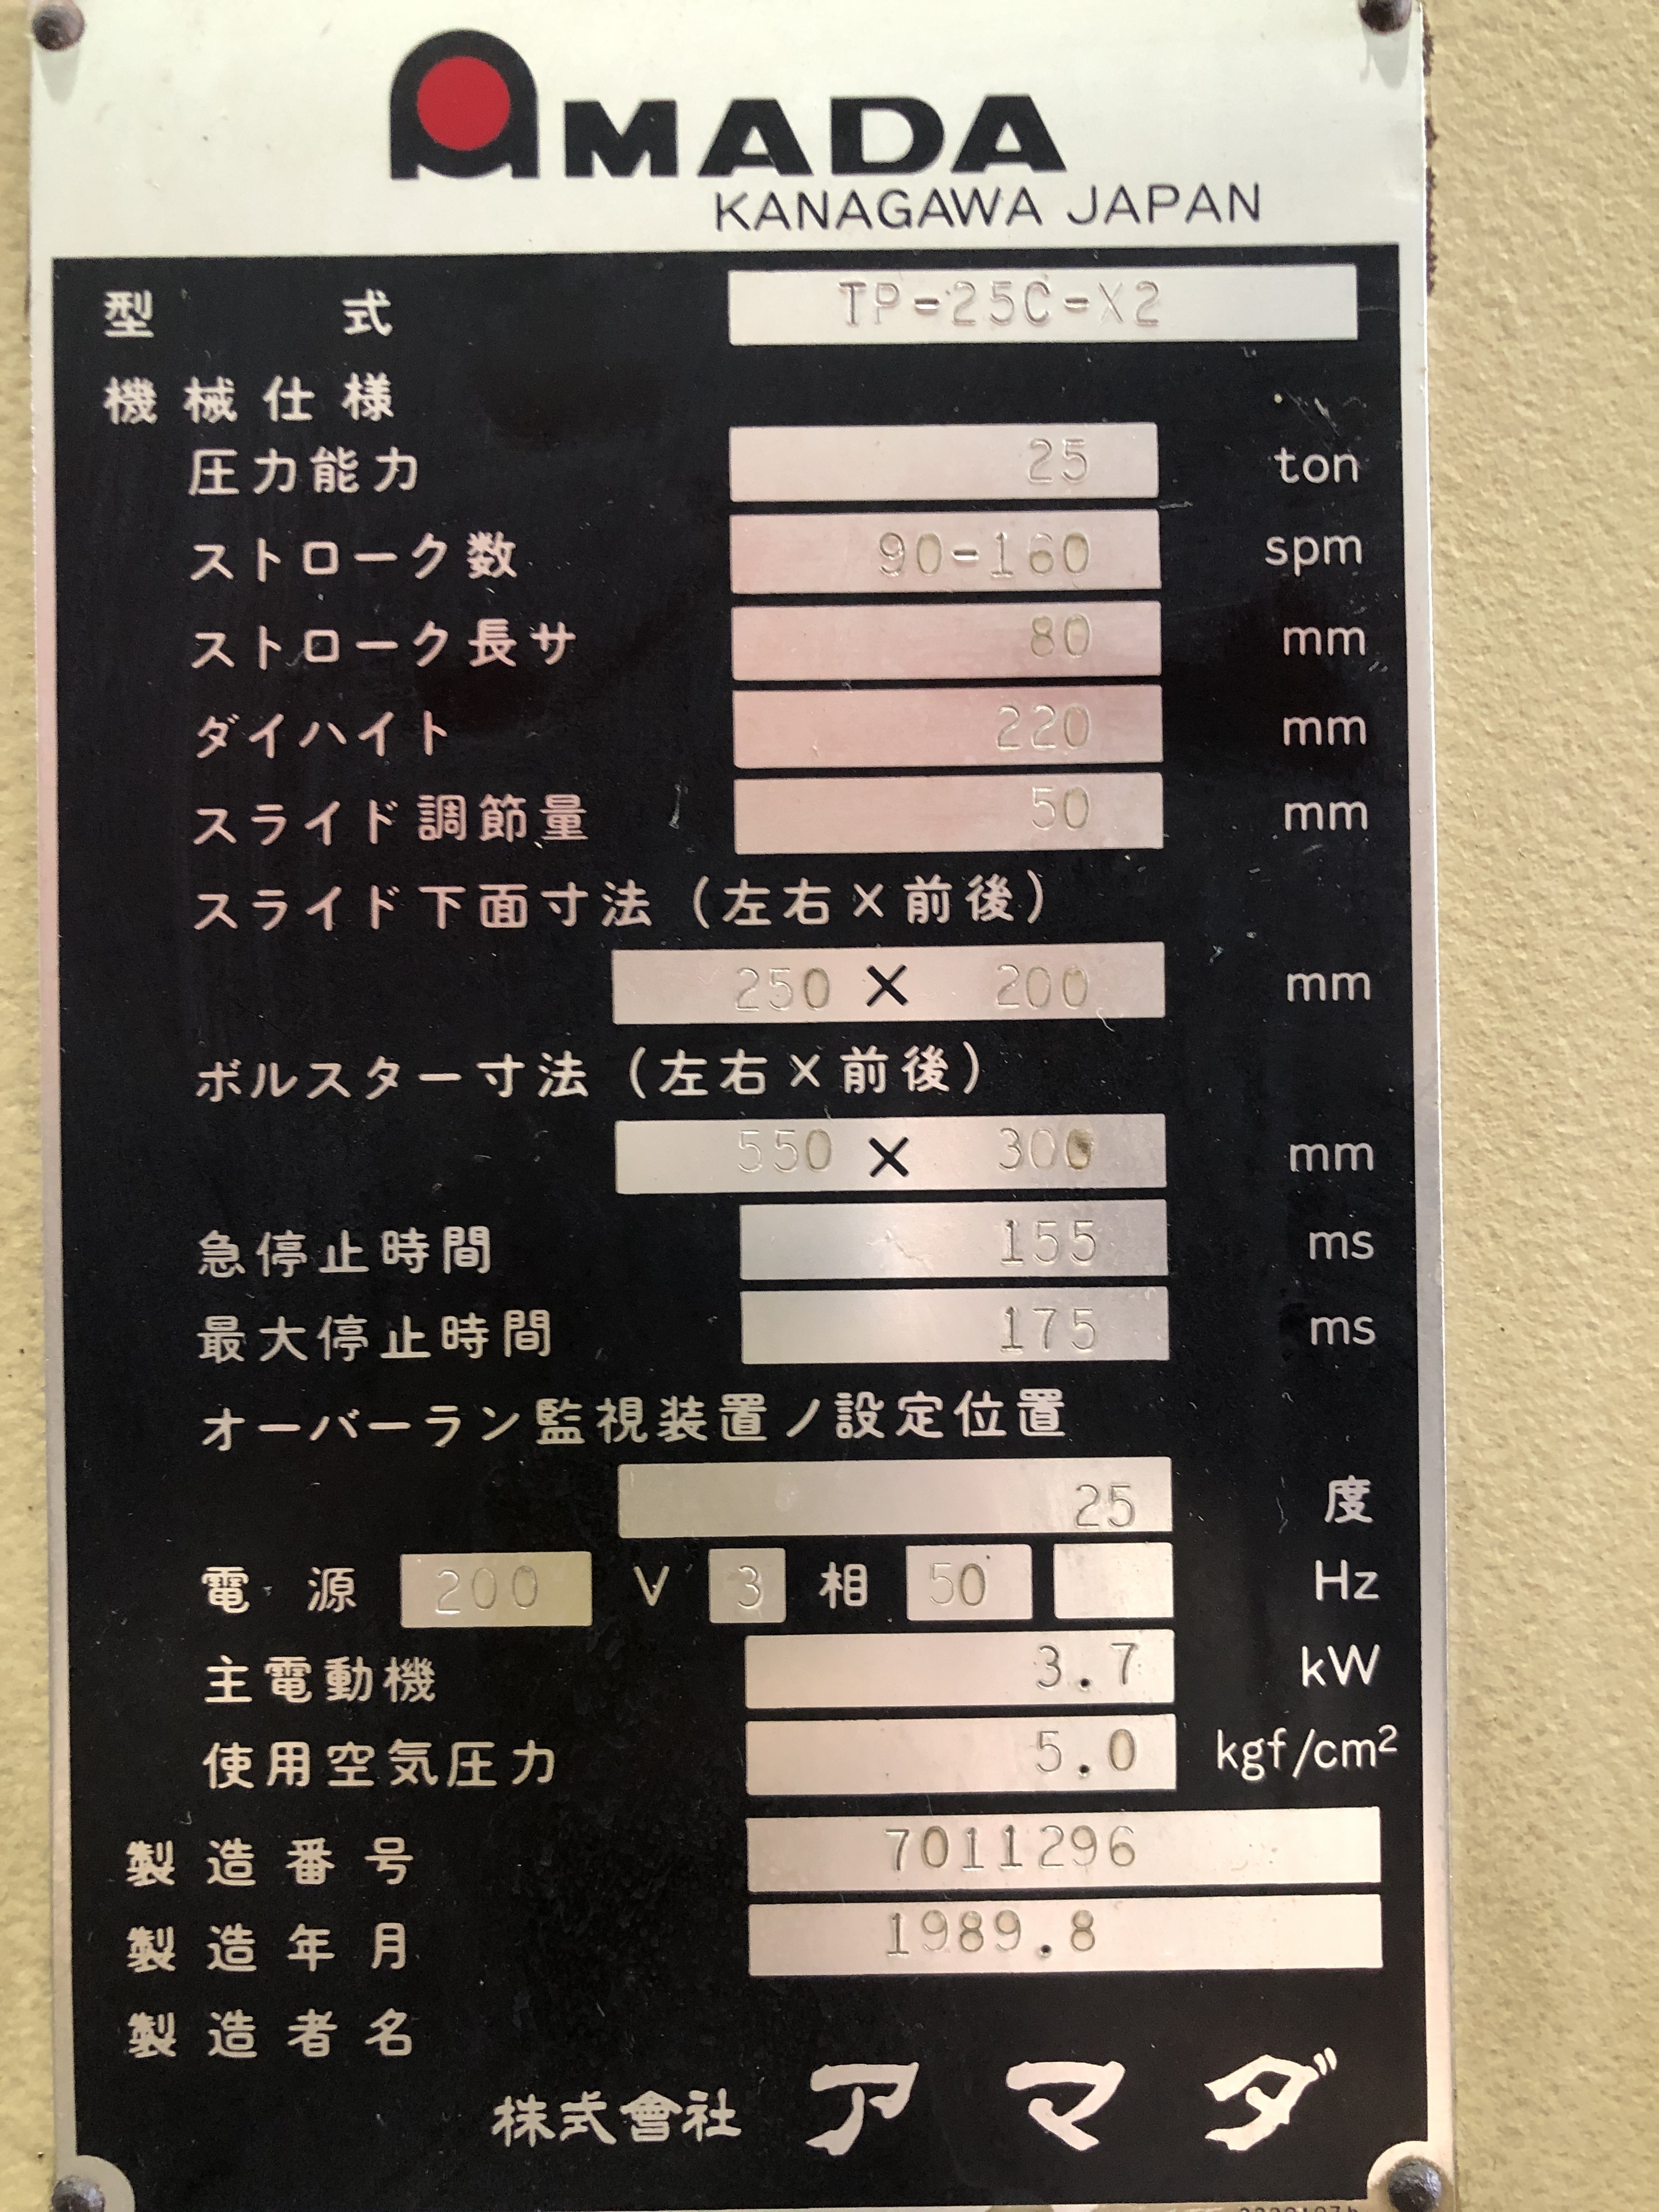 AMADA
KANAGAWA JAPAN
型式 TP-25C-X2
機械仕様
圧力能力 25 ton
ストローク数 90-160 spm
ストローク長サ 80 mm
ダイハイト 220 mm
スライド調節量 50 mm
スライド下面寸法(左右×前後)
250 × 200 mm
ボルスター寸法(左右×前後)
550 × 300 mm
急停止時間 155 ms
最大停止時間 175 ms
オーバーラン監視装置ノ設定位置
25 度
電源 200 V 3 相 50 Hz
主電動機 3.7 kW
使用空気圧力 5.0 kgf/cm²
製造番号 7011296
製造年月 1989.8
製造者名
株式會社 アマダ